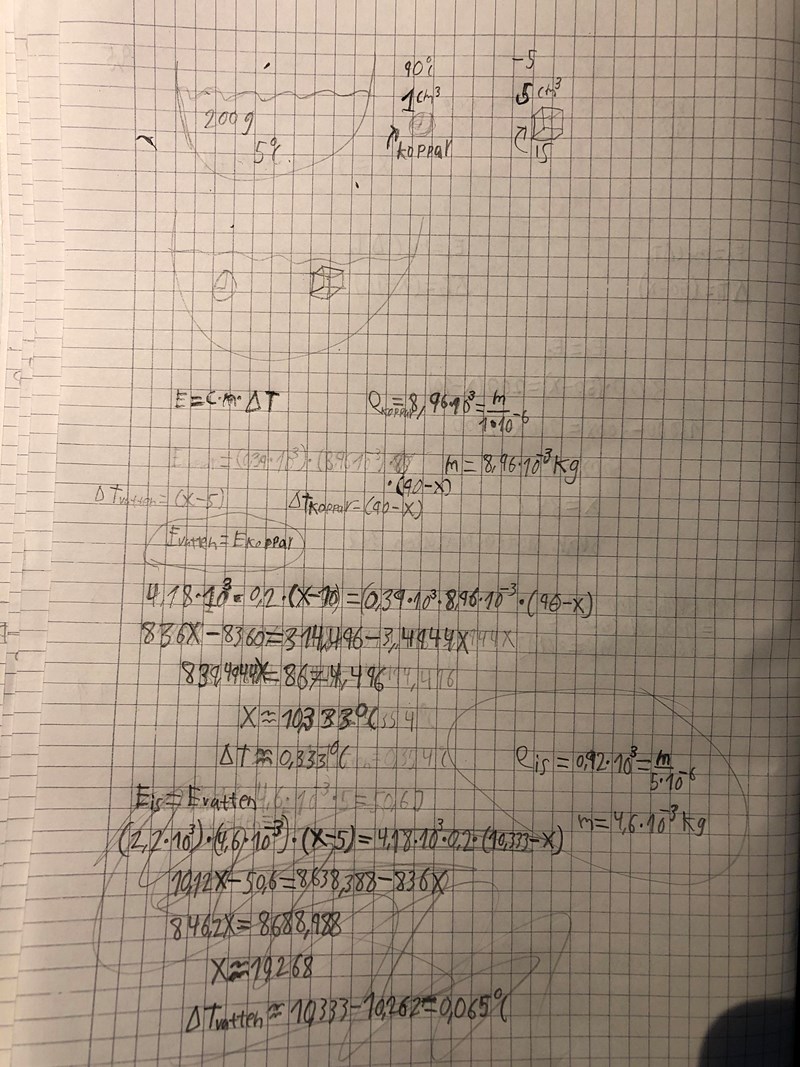 90°C
-5
1 cm³
5 cm³
200g
5°C
koppar
is
E = C·m·ΔT
ρkoppar = 8,96·10³ = m/(1·10⁻⁶)
m = 8,96·10⁻³ kg
·(90-x)
ΔTvatten = (x-5)
ΔTkoppar = (90-x)
Evatten = Ekoppar
4,18·10³·0,2·(x-10) = (0,39·10³·8,96·10⁻³·(90-x)
836x - 8360 = 314,496 - 3,4944x
839,4944x = 8674,496
x ≈ 10,333°C
ΔT ≈ 0,333°C
ρis = 0,92·10³ = m/(5·10⁻⁶)
m = 4,6·10⁻³ kg
Eis = Evatten
(2,2·10³)·(4,6·10⁻³)·(x-5) = 4,18·10³·0,2·(10,333-x)
10,12x - 50,6 = 8638,388 - 836x
846,2x = 8688,988
x ≈ 10,268
ΔTvatten ≈ 10,333 - 10,262 = 0,065°C